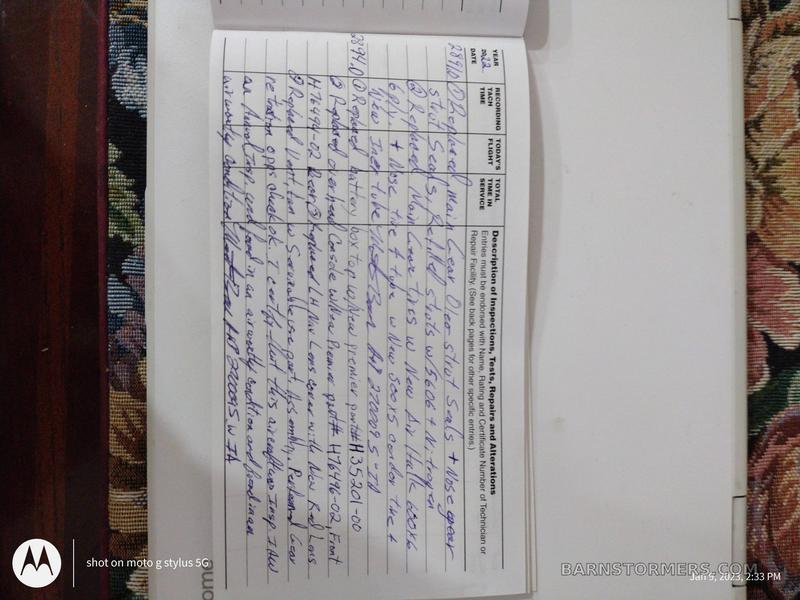 YEAR
2022
DATE
RECORDING
TACH
TIME
TODAY'S
FLIGHT
TOTAL
TIME IN
SERVICE
Description of Inspections, Tests, Repairs and Alterations
Entries must be endorsed with Name, Rating and Certificate Number of Technician or
Repair Facility. (See back pages for other specific entries.)
① Replaced Main Gear Oleo Strut Seals + Nose gear
Strut Seals, Refilled Struts w/ 5606 + Nitrogen
② Replaced Main Gear tires w New Air Hawk 600x6
6ply + Nose tire + tube w New 500x5 tire +
New Iner tube 2700095 IA
2894.0 ① Replaced battery box top w/ New premier part# H35201-00
② Replaced overhead Console w/ New Premier part# H76496-02, Front
H76494-02 Rear ③ Replaced LH Nav Lens cover with New Red Lens
④ Replaced w Serviceable part. Assembly. Performed Gear
retration opps check ok. I certify that this aircraft was Insp. IAW
an Annual Insp. and found in an airworthy condition and found in an
airworthy condition 2700095 IA
shot on moto g stylus 5G
BARNSTORMERS.COM
Jan 9, 2023, 2:33 PM